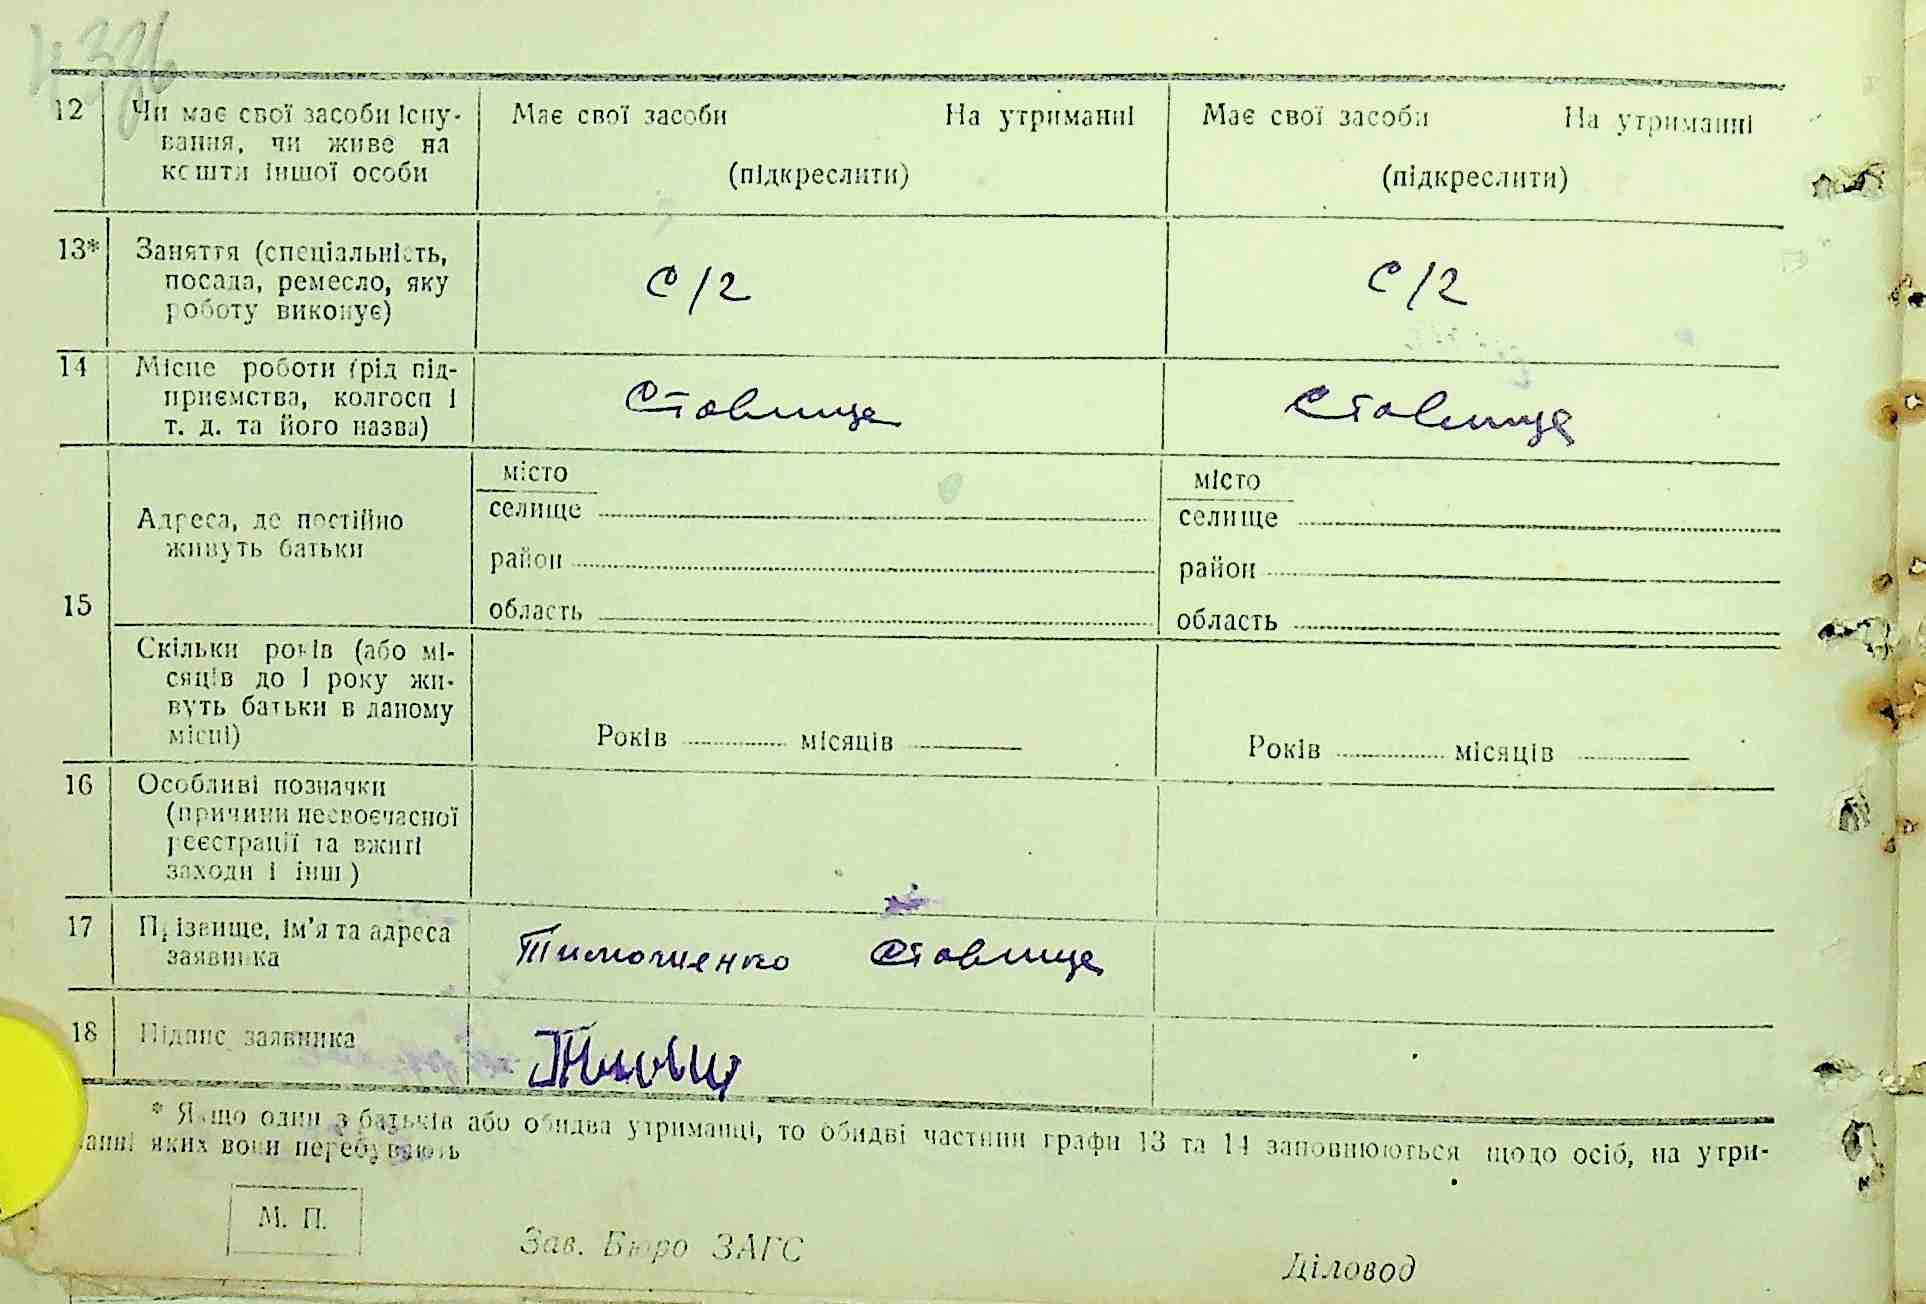 12 Чи має свої засоби існу- Має свої засоби На утриманні Має свої засоби На утриманні
вання, чи живе на
кошти іншої особи (підкреслити) (підкреслити)
13* Заняття (спеціальність,
посада, ремесло, яку с/г с/г
роботу виконує)
14 Місце роботи (рід під-
приємства, колгосп і Ставище Ставище
т. д. та його назва)
місто місто
Адреса, де постійно селище селище
живуть батьки район район
15 область область
Скільки років (або мі-
сяців до 1 року жи-
вуть батьки в даному
місці) Років місяців Років місяців
16 Особливі позначки
(причини несвоєчасної
реєстрації та вжиті
заходи і інш.)
17 Прізвище, ім’я та адреса Тимошенко Ставище
заявника
18 Підпис заявника
* Якщо один з батьків або обидва утриманці, то обидві частини графи 13 та 14 заповнюються щодо осіб, на утри-
анні яких вони перебувають
М. П.
Зав. Бюро ЗАГС
Діловод